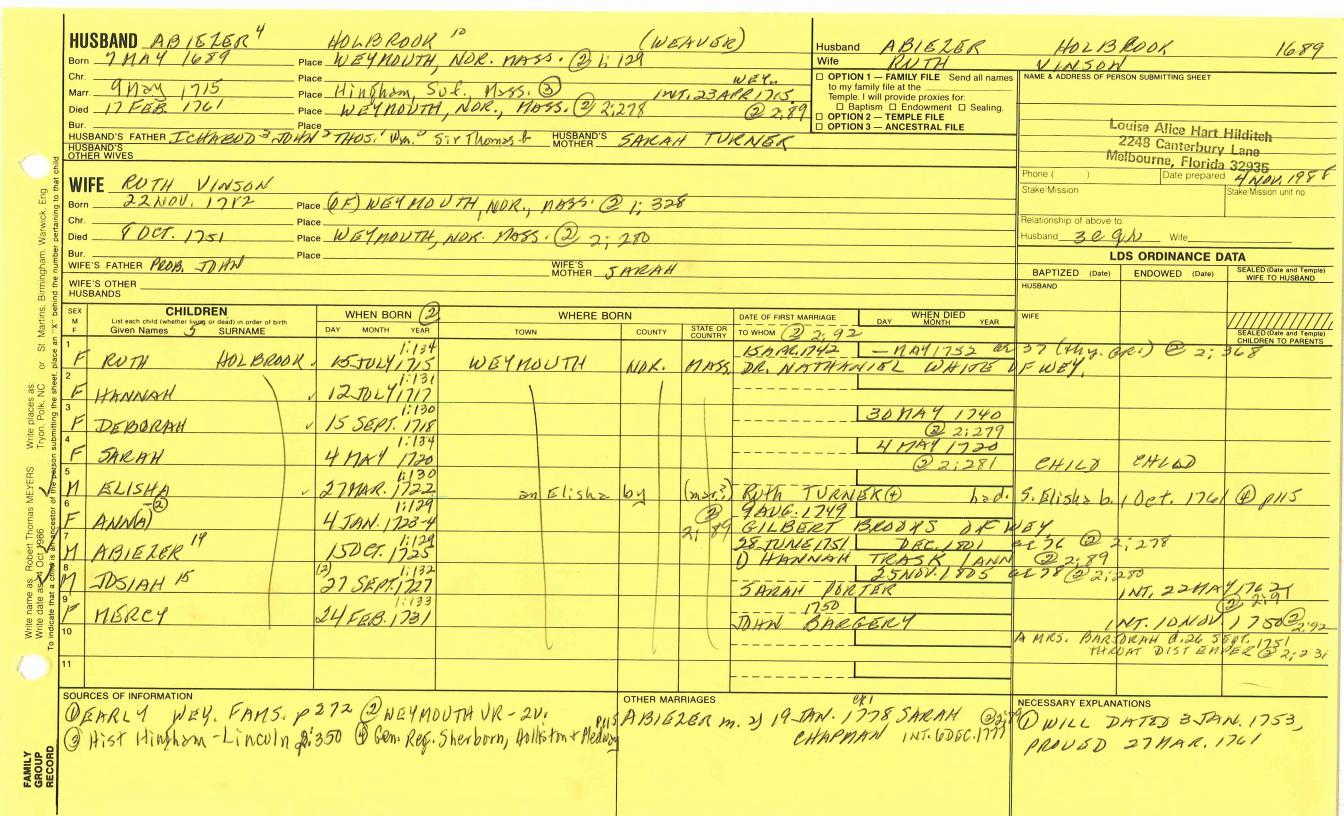 HUSBAND ABIEZER 4 HOLBROOK 10 (WEAVER)
Born 7 MAY 1689 Place WEYMOUTH, NOR. MASS. (2) 1; 129
Chr. Place WEY.
Marr. 9 May 1715 Place Hingham, Suf. Mass. (3) INT. 23 APR 1715
Died 17 FEB. 1761 Place WEYMOUTH, NOR., MASS. (2) 2;278 (2) 2;89
Bur. Place
HUSBAND'S FATHER ICHABOD 3 JOHN 2 THOS. 1 Wm. Sir Thomas HUSBAND'S MOTHER SARAH TURNER
HUSBAND'S OTHER WIVES
WIFE RUTH VINSON
Born 22 NOV. Place (OF) WEYMOUTH, NOR., MASS. (2) 1; 328
Chr. Place
Died OCT. 1751 Place WEYMOUTH, NOR. MASS. (2) 2; 280
Bur. Place
WIFE'S FATHER PROB. JOHN WIFE'S MOTHER SARAH
WIFE'S OTHER HUSBANDS
Husband ABIEZER HOLBROOK 1689
Wife RUTH VINSON
☐ OPTION 1 — FAMILY FILE Send all names
to my family file at the
Temple. I will provide proxies for:
☐ Baptism ☐ Endowment ☐ Sealing.
☐ OPTION 2 — TEMPLE FILE
☐ OPTION 3 — ANCESTRAL FILE
NAME & ADDRESS OF PERSON SUBMITTING SHEET
Louise Alice Hart Hilditch
2248 Canterbury Lane
Melbourne, Florida 32935
Phone ( ) Date prepared 4 NOV. 1988
Stake/Mission Stake/Mission unit no.
Relationship of above to
Husband Wife
LDS ORDINANCE DATA
BAPTIZED (Date) ENDOWED (Date) SEALED (Date and Temple) WIFE TO HUSBAND
HUSBAND
WIFE
SEALED (Date and Temple) CHILDREN TO PARENTS
SEX M F CHILDREN WHEN BORN (2) WHERE BORN DATE OF FIRST MARRIAGE WHEN DIED
List each child (whether living or dead) in order of birth
Given Names SURNAME DAY MONTH YEAR TOWN COUNTY STATE OR COUNTRY TO WHOM (2) 2; 92 DAY MONTH YEAR
1 1:134 15 APR. 1742 — MAY 1752 37 (2) 2; 368
F RUTH HOLBROOK 15 JULY 1715 WEYMOUTH NOR. MASS. DR. NATHANIEL WHITE OF WEY.
2 1:131
F HANNAH 12 JULY 1717
3 1:130 30 MAY 1740
F DEBORAH 15 SEPT. 1718 (2) 2;279
4 1:134 4 MAY 1720
F SARAH 4 MAY 1720 (2) 2;281 CHILD CHILD
5 1:130
M ELISHA 27 MAR. 1722 an Elisha by (mar?) Ruth TURNER (4) had. S. Elisha b. 1 Oct. 1761 (4) p115
6 (2) 1:129 (2) 9 AUG. 1749
F ANNA 4 JAN. 1723-4 2; 89 GILBERT BROOKS OF WEY
7 1:129 28 JUNE 1751 DEC. 1801 ae 76 (2) 2;278
M ABIEZER 14 15 OCT. 1725 1) HANNAH TRASK (ANN (2) 2;89
8 (2) 1:132 25 NOV. 1805 ae 78 (2) 2;280
M JOSIAH 15 27 SEPT. 1727 SARAH PORTER INT. 22 MAY 1762
9 1:133 1750 (2) 2;91
F MERCY 24 FEB. 1731 JOHN BARGERY INT. 10 NOV. 1750 (2) 2;92
10 A MRS. d. 26 SEPT. 1751
THROAT DISTEMPER (2) 2;
11
SOURCES OF INFORMATION
(1) EARLY WEY. FAMS. p 272 (2) WEYMOUTH VR - 2v.
(3) Hist Hingham - Lincoln 2:350 (4) Gen. Reg. Sherborn, Holliston + Medway p115
OTHER MARRIAGES
ABIEZER m. 2) 19 JAN. 1778 SARAH
CHAPMAN INT. 6 DEC. 1777
NECESSARY EXPLANATIONS
(1) WILL DATED 3 JAN. 1753,
PROVED 27 MAR. 1761
Write name as: Robert Thomas MEYERS Write places as: St. Martins, Birmingham, Warwick, Eng.
Write date as: 4 Oct 1986 or Tryon, Polk, NC
To indicate that a child is an ancestor of the person submitting the sheet, place an "X" behind the number pertaining to that child
FAMILY GROUP RECORD